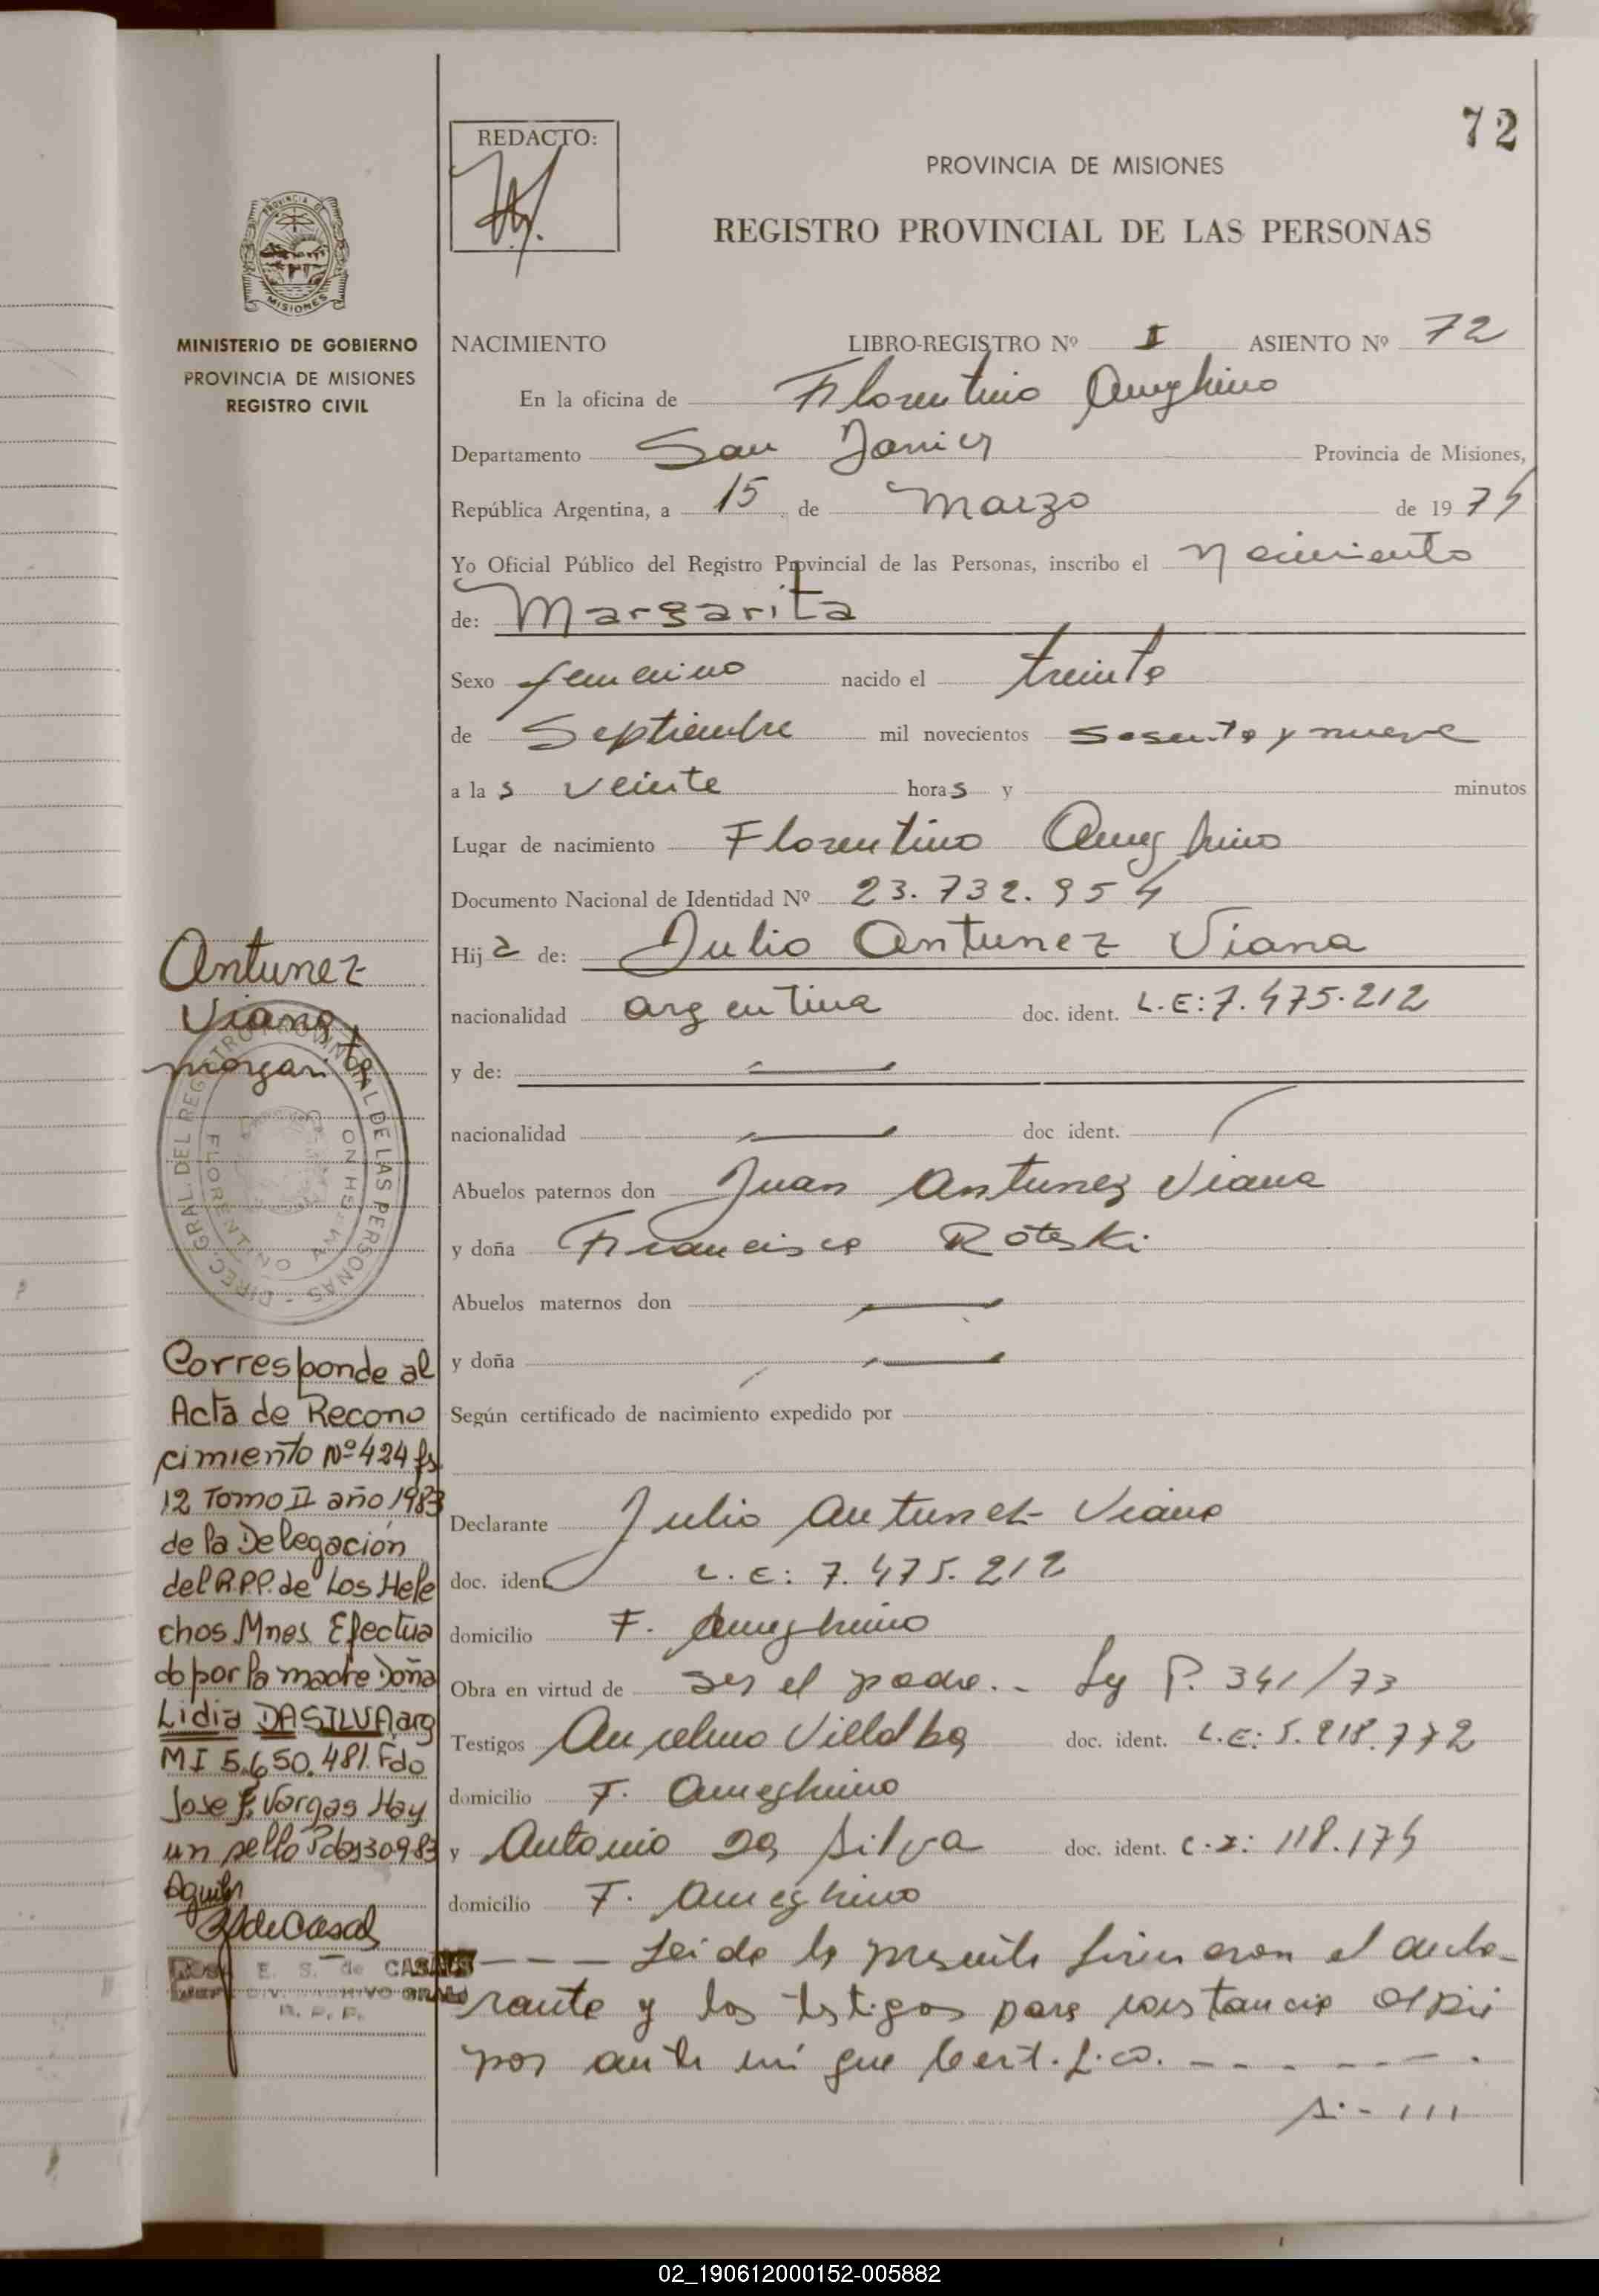 72
REDACTO:
PROVINCIA DE MISIONES
REGISTRO PROVINCIAL DE LAS PERSONAS
PROVINCIA DE
MISIONES
MINISTERIO DE GOBIERNO
PROVINCIA DE MISIONES
REGISTRO CIVIL
NACIMIENTO LIBRO-REGISTRO Nº I ASIENTO Nº 72
En la oficina de Florentino Ameghino
Departamento San Javier Provincia de Misiones,
República Argentina, a 15 de Marzo de 1974
Yo Oficial Público del Registro Provincial de las Personas, inscribo el Nacimiento
de: Margarita
Sexo femenino nacido el treinta
de Septiembre mil novecientos sesenta y nueve
a las veinte horas y minutos
Lugar de nacimiento Florentino Ameghino
Documento Nacional de Identidad Nº 23.732.954
Hija de: Julio Antunez Viana
nacionalidad argentina doc. ident. L.E: 7.475.212
y de: —
nacionalidad — doc ident. /
Abuelos paternos don Juan Antunez Viana
y doña Francisca Roteski
Abuelos maternos don —
y doña —
Según certificado de nacimiento expedido por
Declarante Julio Antunez Viana
doc. ident L.E: 7.475.212
domicilio F. Ameghino
Obra en virtud de ser el padre.- Ley P. 341/73
Testigos Anselmo Villalba doc. ident. L.E: 5.218.772
domicilio F. Ameghino
y Antonio Da Silva doc. ident. C.I: 118.174
domicilio F. Ameghino
- - - Leida la presente firmaron el decla-
rante y los testigos para constancia al pie
por ante mi que Certifico. - - - - - -
S.- 111
Antunez
Viana
margarita
DIREC. GRAL. DEL REGISTRO PROVINCIAL DE LAS PERSONAS -
FLORENTINO AMEGHINO
Corresponde al
Acta de Recono
cimiento Nº 424 fs
12 Tomo II año 1983
de la Delegación
del R.P.P. de Los Hele
chos Mnes Efectua
do por la madre Doña
Lidia DASILVA arg
MI 5.650.481. Fdo
Jose F. Vargas Hay
un sello Pdas 130983
Aguiler
E. S. de CASALS
R. P. P.
02_190612000152-005882